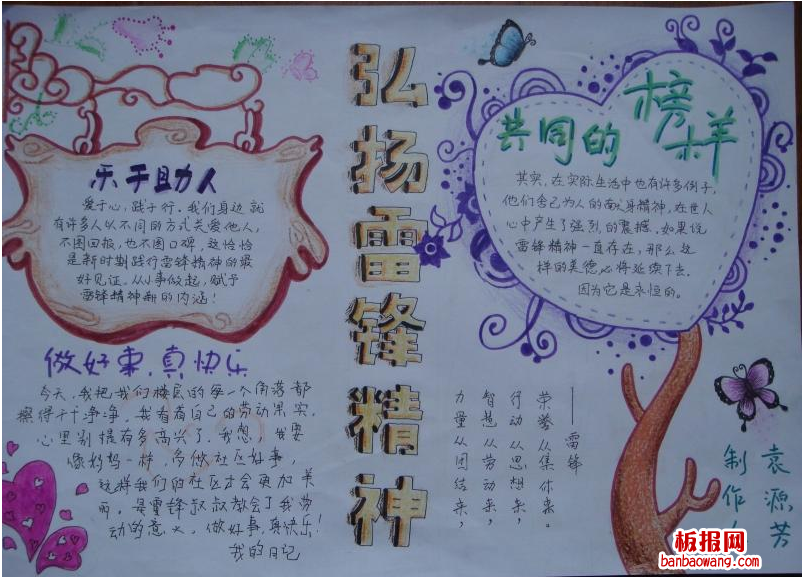 弘扬雷锋精神
乐于助人
爱于心，践于行。我们身边就
有许多人以不同的方式关爱他人，
不图回报，也不图口碑，这恰恰
是新时期践行雷锋精神的最
好见证。从小事做起，赋予
雷锋精神新的内涵！
共同的榜样
其实，在实际生活中也有许多例子，
他们舍己为人的献身精神，在世人
心中产生了强烈的震撼。如果说
雷锋精神一直存在，那么这
样的美德必将延续下去。
因为它是永恒的。
做好事，真快乐
今天，我把我们楼层的每一个角落都
擦得干干净净，我看着自己的劳动果实，
心里别提有多高兴了。我想，我要
像妈妈一样，多做社区好事，
这样我们的社区才会更加美
丽，是雷锋叔叔教会了我劳
动的意义，做好事真快乐！
我的日记
——雷锋
荣誉从集体来。
行动从思想来，
智慧从劳动来，
力量从团结来，
制作人
袁源芳
板报网
banbaowang.com